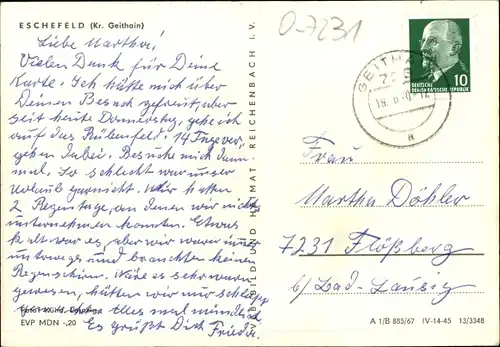 ESCHEFELD (Kr. Geithain)
O-7231
Liebe Martha!
Vielen Dank für Deine
Karte. Ich hätte mich über
Deinen Besuch gefreut, aber
seit heute Donnerstag, gehe ich
auf das Rübenfeld. 14 Tage ver-
gehen dabei. Besuche mich dann
mal. So schlecht war unser
Urlaub garnicht. Wir hatten
2 Regentage, an denen wir nichts
unternehmen konnten. Etwas
kalt war es, aber wir waren immer
unterwegs und brauchten keinen
Regenschirm. Wäre es sehr warm
gewesen, hätten wir nur schlapp
alles mal mündlich
Es grüßt Dich Frieda
EVP MDN -,20
VEB BILD UND HEIMAT · REICHENBACH I. V.
GEITHAIN
a
DEUTSCHE
DEMOKRATISCHE REPUBLIK
10
Frau
Martha Döhler
7231 Flößberg
b/ Bad-Lausig
A 1/B 885/67 IV-14-45 13/3348